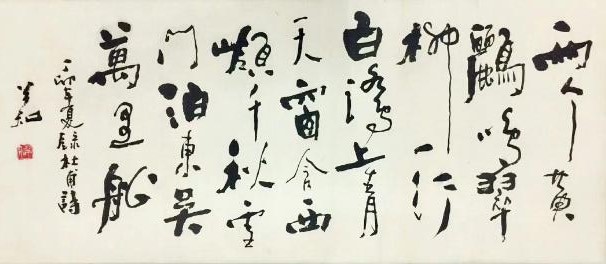 兩个黄
鸝鳴翠
柳一行
白鷺上青
天窗含西
嶺千秋雪
门泊東吴
萬里船
丁卯年夏錄杜甫詩